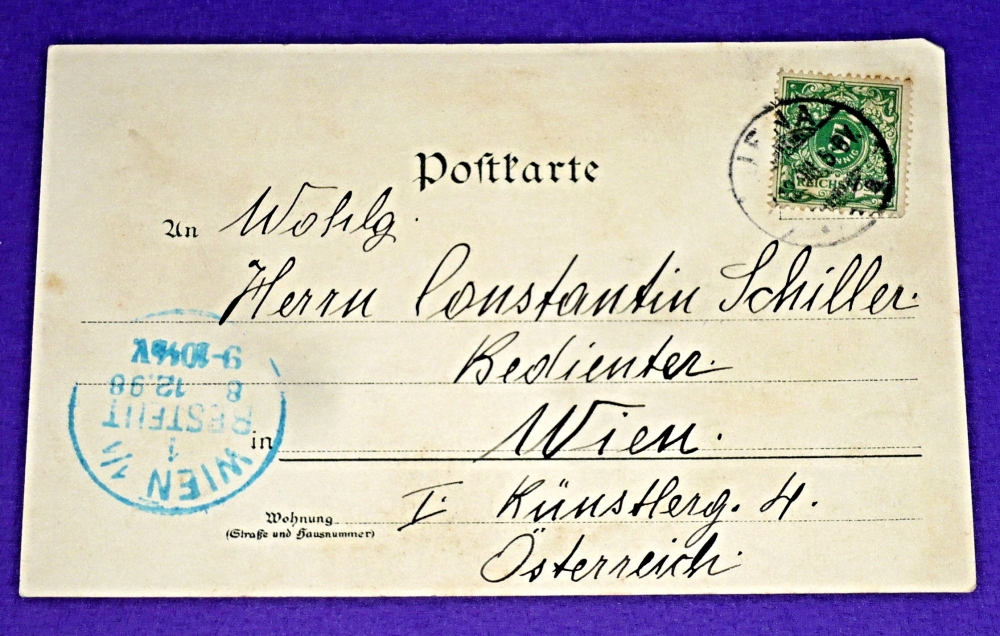 Postkarte
An Wohlg.
Herrn Constantin Schiller.
Bedienter.
in Wien.
I. Künstlerg. 4.
Wohnung
(Straße und Hausnummer)
Österreich.
JENA
REICHSPOST
WIEN 1/1
1
BESTELLT
8 12.98
9-10½V